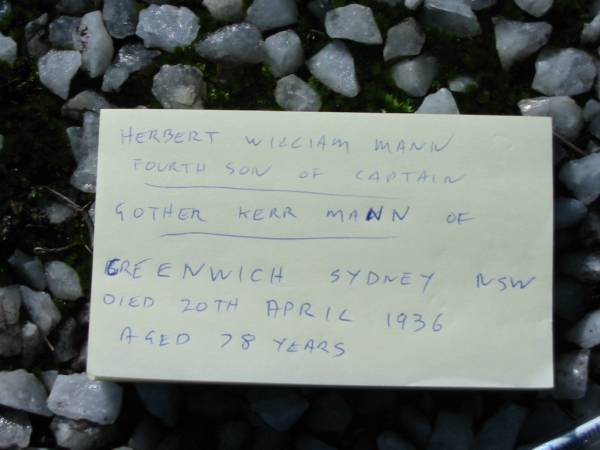 HERBERT WILLIAM MANN
FOURTH SON OF CAPTAIN
GOTHER KERR MANN OF
GREENWICH SYDNEY NSW
DIED 20TH APRIL 1936
AGED 78 YEARS